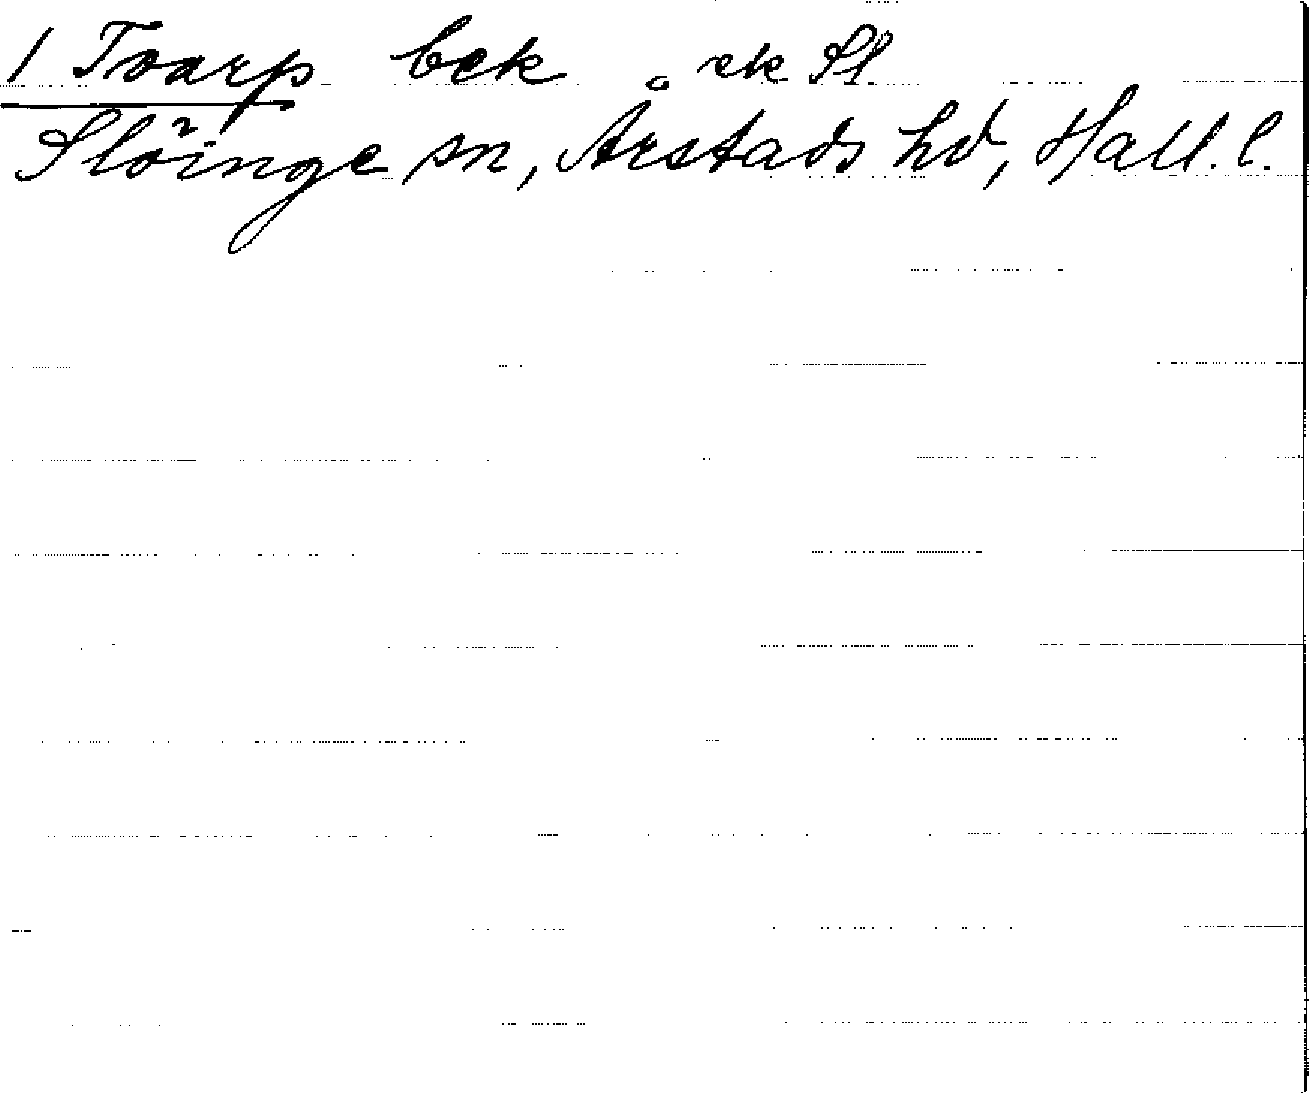 1 Tvarp bek ek Sl
Slöinge sn, Årstads hd, Hall. l.